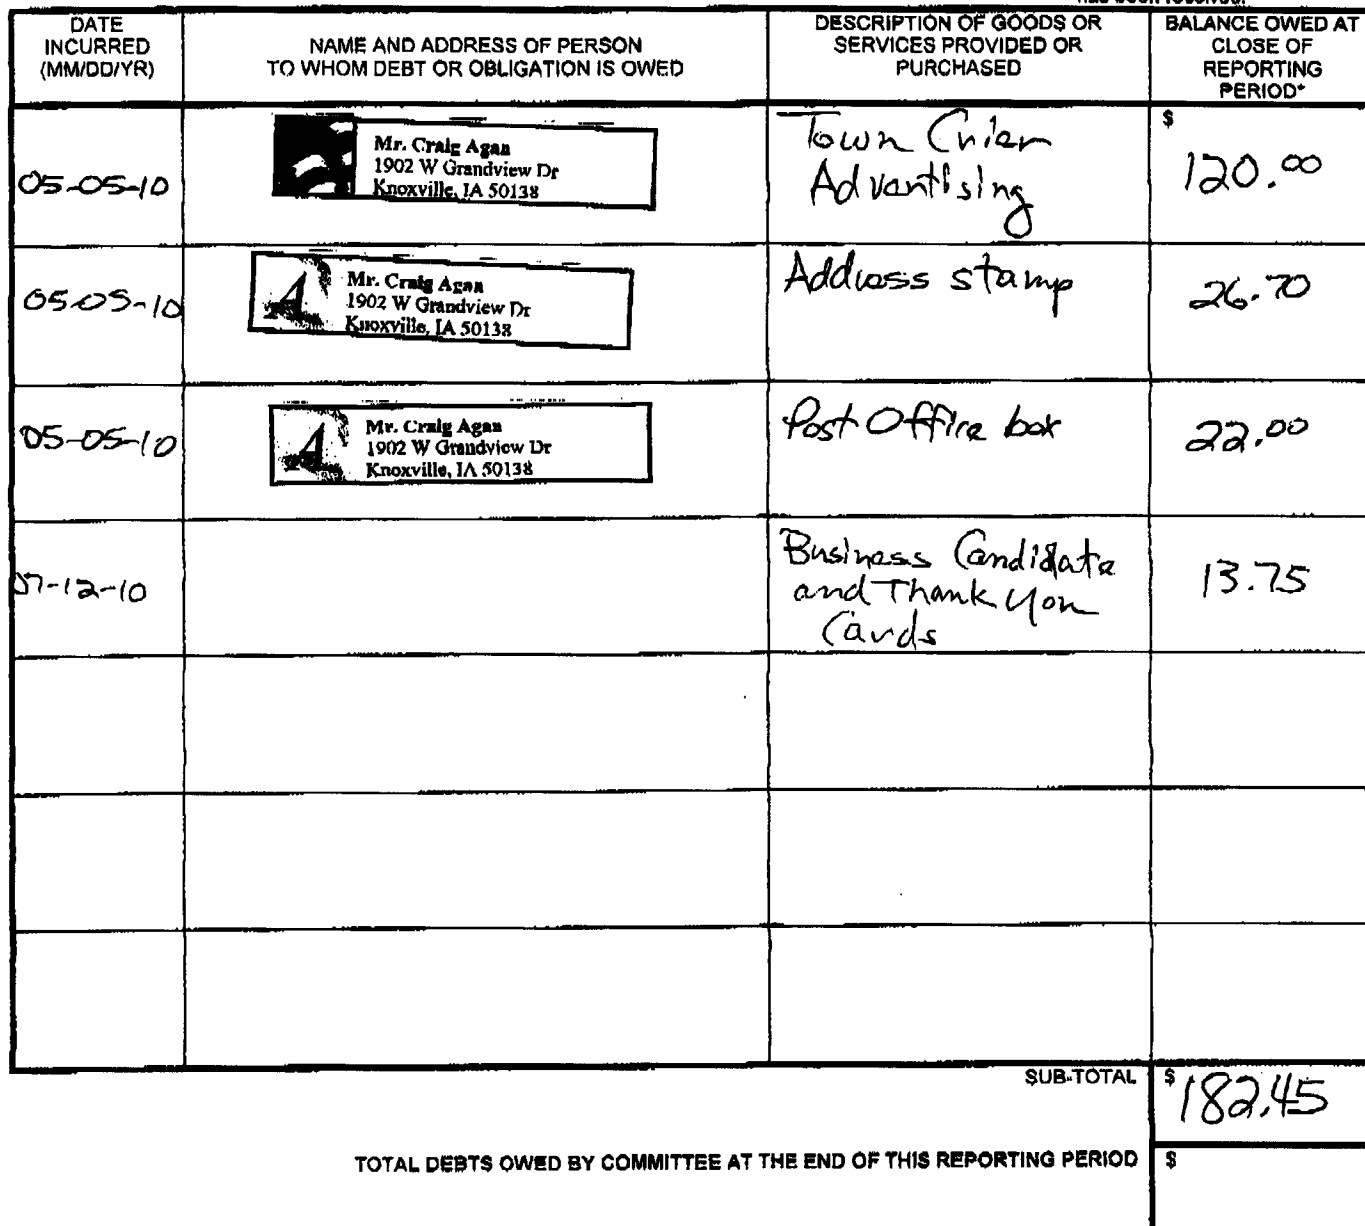 DATE
INCURRED
(MM/DD/YR)
NAME AND ADDRESS OF PERSON
TO WHOM DEBT OR OBLIGATION IS OWED
DESCRIPTION OF GOODS OR
SERVICES PROVIDED OR
PURCHASED
BALANCE OWED AT
CLOSE OF
REPORTING
PERIOD*
05-05-10
Mr. Craig Agan
1902 W Grandview Dr
Knoxville, IA 50138
Town Crier
Advertising
$
120.00
05-05-10
A
Mr. Craig Agan
1902 W Grandview Dr
Knoxville, IA 50138
Address stamp
26.70
05-05-10
A
Mr. Craig Agan
1902 W Grandview Dr
Knoxville, IA 50138
Post Office box
22.00
07-12-10
Business Candidate
and Thank You
Cards
13.75
SUB-TOTAL
$ 182.45
TOTAL DEBTS OWED BY COMMITTEE AT THE END OF THIS REPORTING PERIOD
$